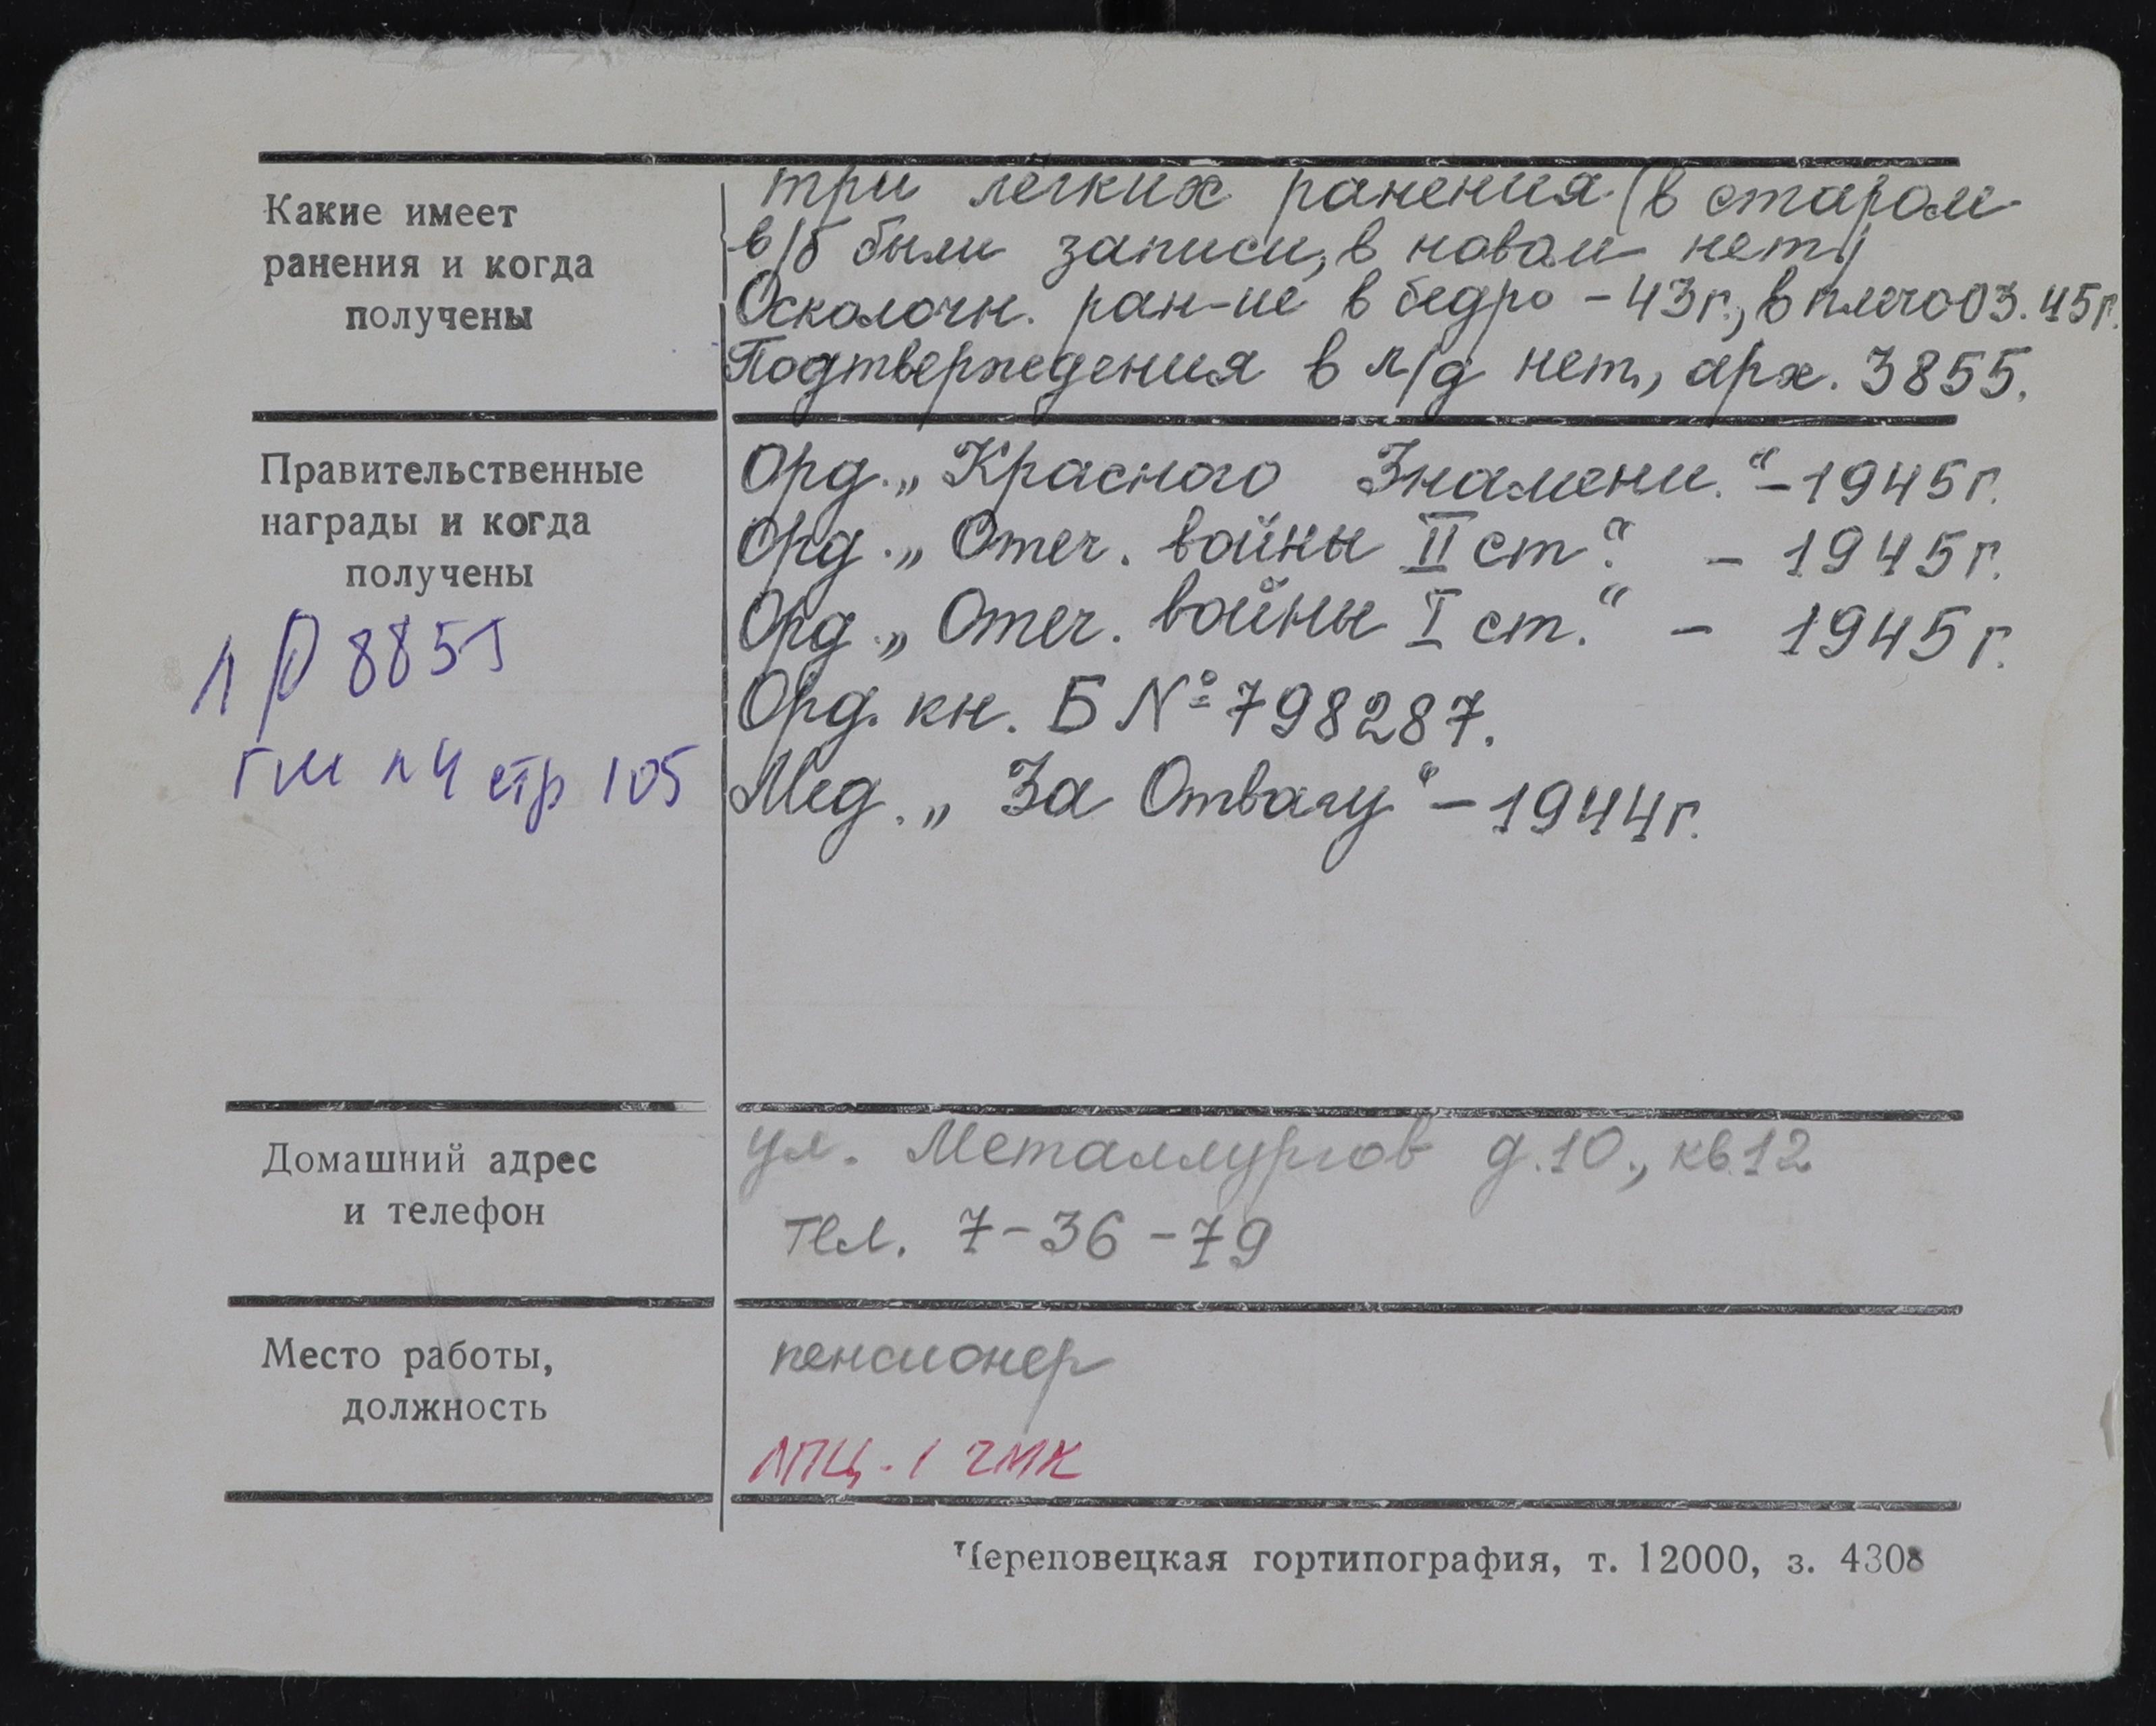 Какие имеет
ранения и когда
получены
три легких ранения (в старом
в/б были записи, в новом нет)
Осколочн. ран-ие в бедро - 43г., в плечо 03.45г.
Подтверждения в л/д нет, арх. 3855.
Правительственные
награды и когда
получены
Орд. „Красного Знамени." - 1945г.
Орд. „Отеч. войны II ст." - 1945г.
Орд. „Отеч. войны I ст." - 1945г.
Орд. кн. Б № 798287.
Мед. „За Отвагу" - 1944г.
8855
ГМ п 4 стр 105
Домашний адрес
и телефон
ул. Металлургов д.10., кв.12
тел. 7-36-79
Место работы,
должность
пенсионер
ЛПЦ-1 ЧМК
Череповецкая гортипография, т. 12000, з. 4308